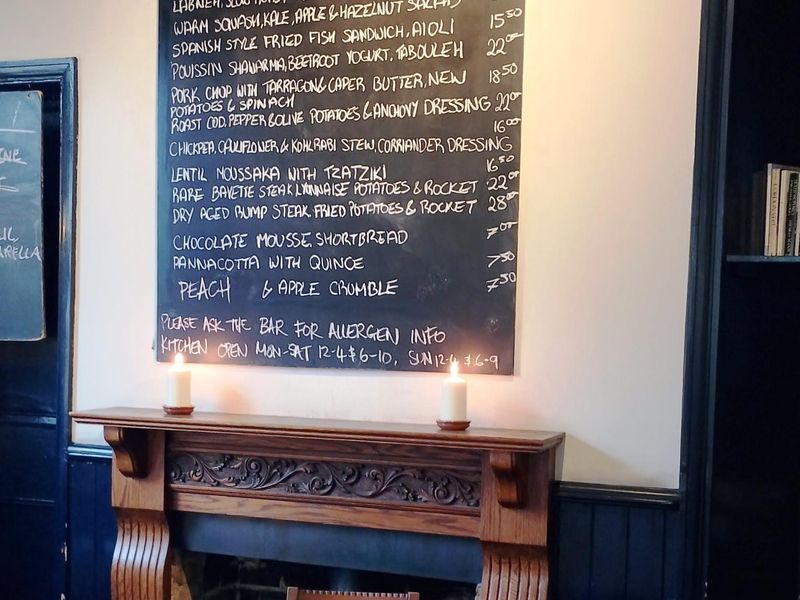 LABNEH, SLOW
WARM SQUASH, KALE, APPLE & HAZELNUT SALAD
SPANISH STYLE FRIED FISH SANDWICH, AIOLI 15.50
POUSSIN SHAWARMA, BEETROOT YOGURT, TABOULEH 22.00
PORK CHOP WITH TARRAGON & CAPER BUTTER, NEW 18.50
POTATOES & SPINACH
ROAST COD, PEPPER & OLIVE POTATOES & ANCHOVY DRESSING 22.00
16.00
CHICKPEA, CAULIFLOWER & KOHLRABI STEW, CORRIANDER DRESSING
LENTIL MOUSSAKA WITH TZATZIKI 16.50
RARE BAVETTE STEAK LYONNAISE POTATOES & ROCKET 22.00
DRY AGED RUMP STEAK, FRIED POTATOES & ROCKET 28.00
CHOCOLATE MOUSSE, SHORTBREAD 7.00
PANNACOTTA WITH QUINCE 7.50
PEACH & APPLE CRUMBLE 7.50
PLEASE ASK THE BAR FOR ALLERGEN INFO
KITCHEN OPEN MON-SAT 12-4 & 6-10, SUN 12-4 & 6-9